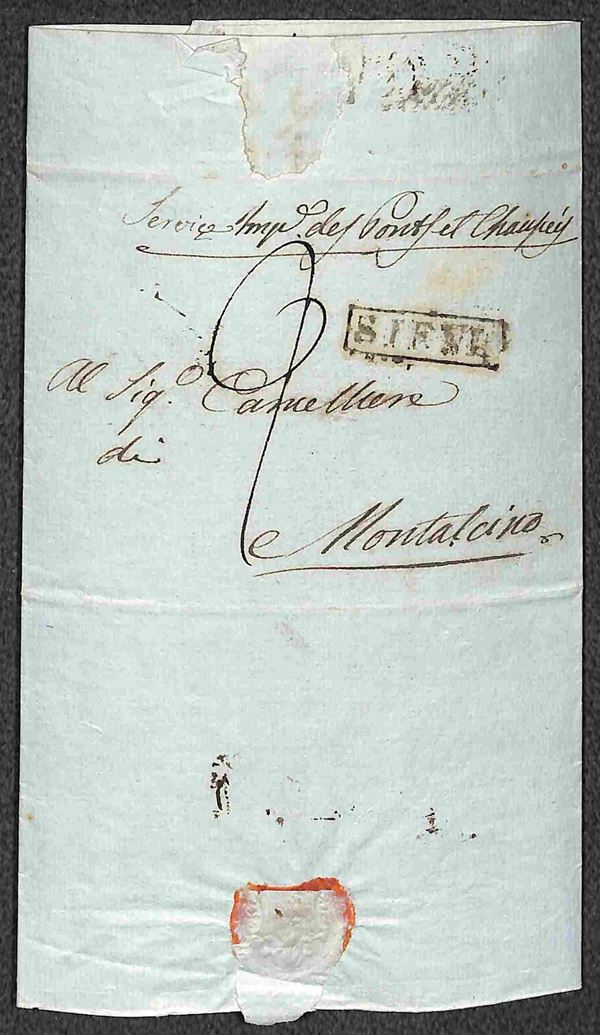 Service Imp.e des Ponts et Chaussées
SIENE
Al Sig.o Camelliere
di
Montalcino